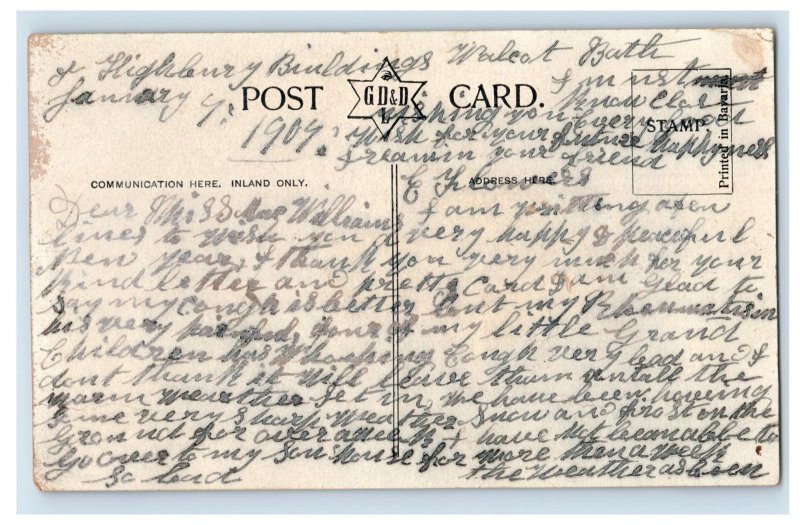 4 Highbury Buildings Walcot Bath
January 9. 1909.
POST CARD.
GD&D
L
COMMUNICATION HERE, INLAND ONLY.
ADDRESS HERE.
STAMP.
Printed in Bavaria.
Dear Miss Mac Williams I am writting a fen
lines to wish you a very happy & peaceful
New year, & thank you very much for your
Kind letter and prette Card I am Glad to
say my cough is better but my Rheumatism
his very four of my little Grand
Children has Whooping Cough very bad and I
dont thank it will leave them untall the
warm wearther set in we have been haveing
Some very sharp Weather Snow and frost on the
Ground for over a week & have Not been able to
Go over to my Son house for more then a week
so bad the Weather as been
I must
Know Close
wishing you every
Wish for your future happyness
I reamin your friend